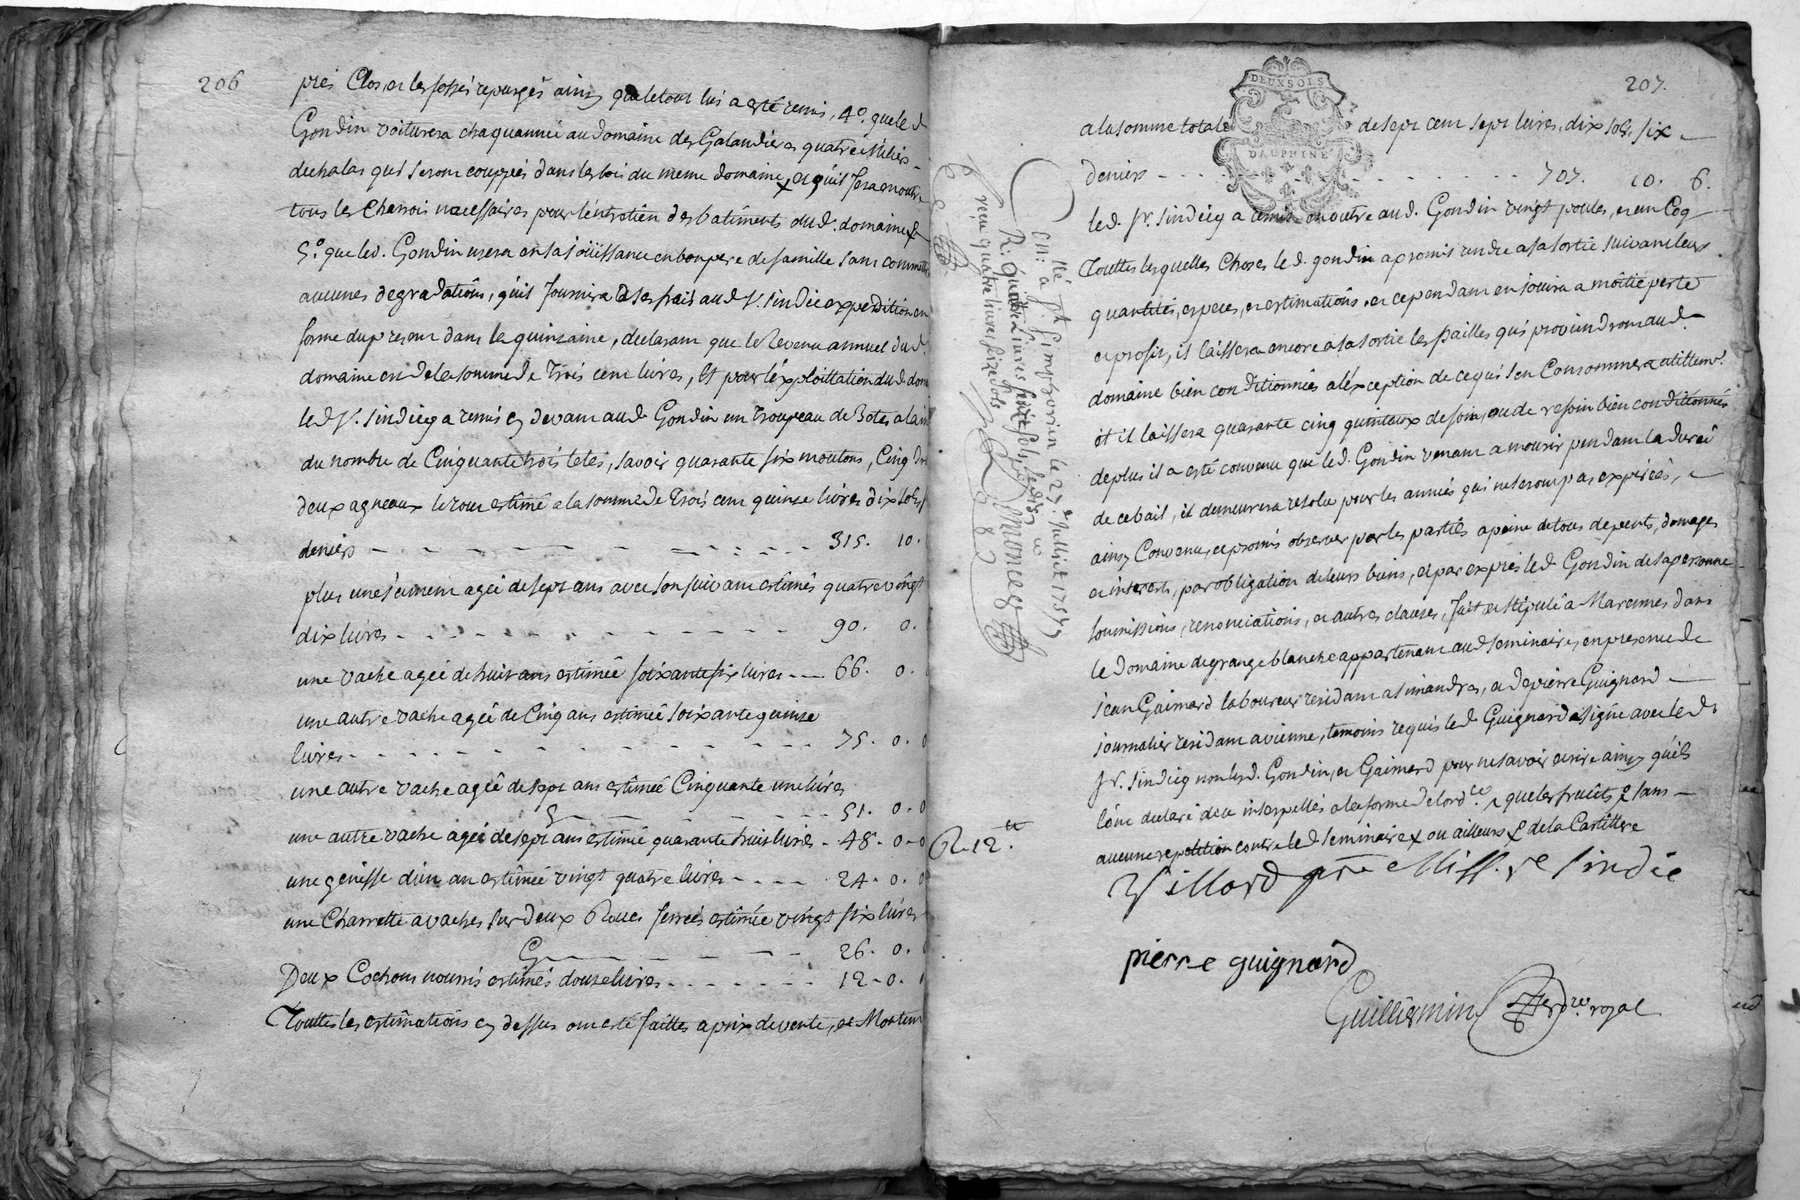 206
prés Clos et les fossés repurgés ainsy que le tout luy a esté remis, 4°. que le d
Gondin voiturera chaque année au domaine des Galandieres quatre Miliers
dechalas qui seront couppés dans les bois du meme domaine, et qu'il fera en outre
tous les Charrois necessaires pour l'entretien des batiments dud. domaine
5°. que led. Gondin usera en sa joüissance en bon pere de famille sans commettre
aucunes degradations, qu'il fournira a ses frais aud Sr. sindic expedition en
forme du present dans la quinzaine, declarant que le Revenu annuel dud.
domaine est de la somme de Trois cent livres, Et pour l'exploittation dud. dom
led. Sr. sindicq a remis cy devant aud Gondin un troupeau de Betes a laine
du nombre de Cinquante trois tetes, savoir quarante six moutons, Cinq
deux agneaux le tout estimé a la somme de Trois cent quinse livres dix sols
deniers 315. 10.
plus une jument agée de sept ans avec son suivant estimés quatre vingt
dix livres 90. 0.
une vache agée de huit ans estimée soixante six livres 66. 0.
une autre vache agée de Cinq ans estimée soixante quinse
livres 75. 0. 0
une autre vache agée de sept ans estimée Cinquante une livres
51. 0. 0
une autre vache agée de sept ans estimée quarante huit livres 48. 0. 0
une genisse d'un an estimée vingt quatre livres 24. 0. 0
une Charrette a vaches sur deux Roues ferrées estimée vingt six livres
26. 0. 0
Deux Cochons nourris estimés douse livres 12. 0.
Touttes les estimations cy dessus ont esté faittes a prix de vente, et Montent
207.
DEUX SOLS
DAUPHINÉ
a la somme totale de sept cent sept livres, dix sols, six
deniers 707. 10. 6.
led. Sr. sindicq a remis en outre aud. Gondin vingt poules, et un Coq
Touttes lesquelles Choses le d. gondin a promis rendre a sa sortie suivant leurs
quantités, especes, et estimations, et cependant en jouira a moitié perte
et profit, il laissera encore a sa sortie les pailles qui proviendront aud.
domaine bien conditionnées a l'exception de ce qui s'en Consommera utilement.
et il laissera quarante cinq quinteaux de foin, ou de refoin bien conditionnés
de plus il a esté convenu que led. Gondin venant a mourir pendant la durée
de ce bail, il demeurera resolu pour les années qui ne seront pas expirées,
ainsy Convenu, et promis observer par les parties a peine de tous depents, domages
et interests, par obligation de leurs biens, et par exprés led Gondin de sa personne
soumissions, renonciations, et autres clauses, fait et stipulé a Marennes dans
le domaine de grange blanche appartenant aud seminaire, en presence de
jean Gaimard laboureur residant a simandres, et de pierre Guignard
journalier residant a vienne, temoins requis led Guignard a signé avec led.
Sr. sindicq non lesd. Gondin, et Gaimard pour ne savoir ecrire ainsy qu'ils
l'ont declaré de ce interpellés a la forme de l'ordce. que les fruits sans
aucune repetition contre led seminaire ou ailleurs de la Castillere
Villard ptre Miss. re sindic
pierre guignard
Guillermin Herdre. royal
R. 12.tt
Cllé. a St. Simphorien le 27. Juilliet 1757
R. Quatre Livres seize sols
reçu quatre livres seize sols